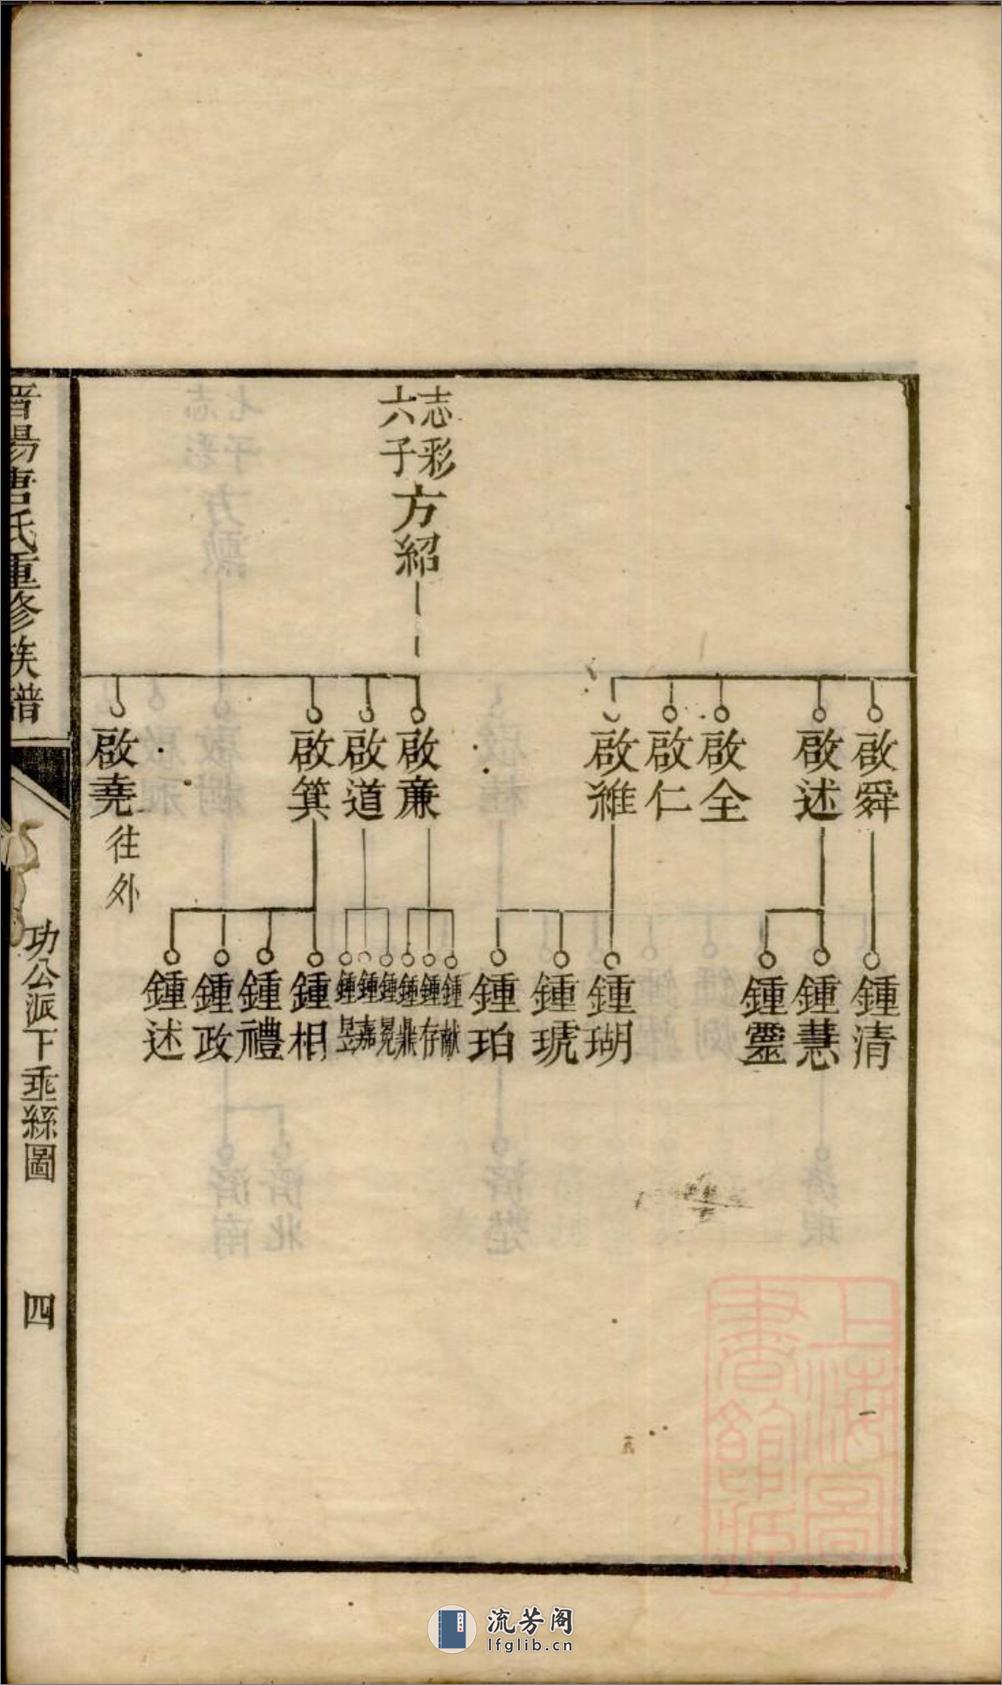 志彩
六子
方紹
啟舜
啟述
啟全
啟仁
啟維
啟亷
啟道
啟箕
啟堯往外
鍾清
鍾慧
鍾靈
鍾瑚
鍾琥
鍾珀
鍾献
鍾存
鍾鼎
鍾冕
鍾嘉
鍾昱
鍾相
鍾禮
鍾政
鍾述
晋陽唐氏重修族譜
功公派下垂絲圖
四
上海圖書館藏
流芳阁
lfglib.cn